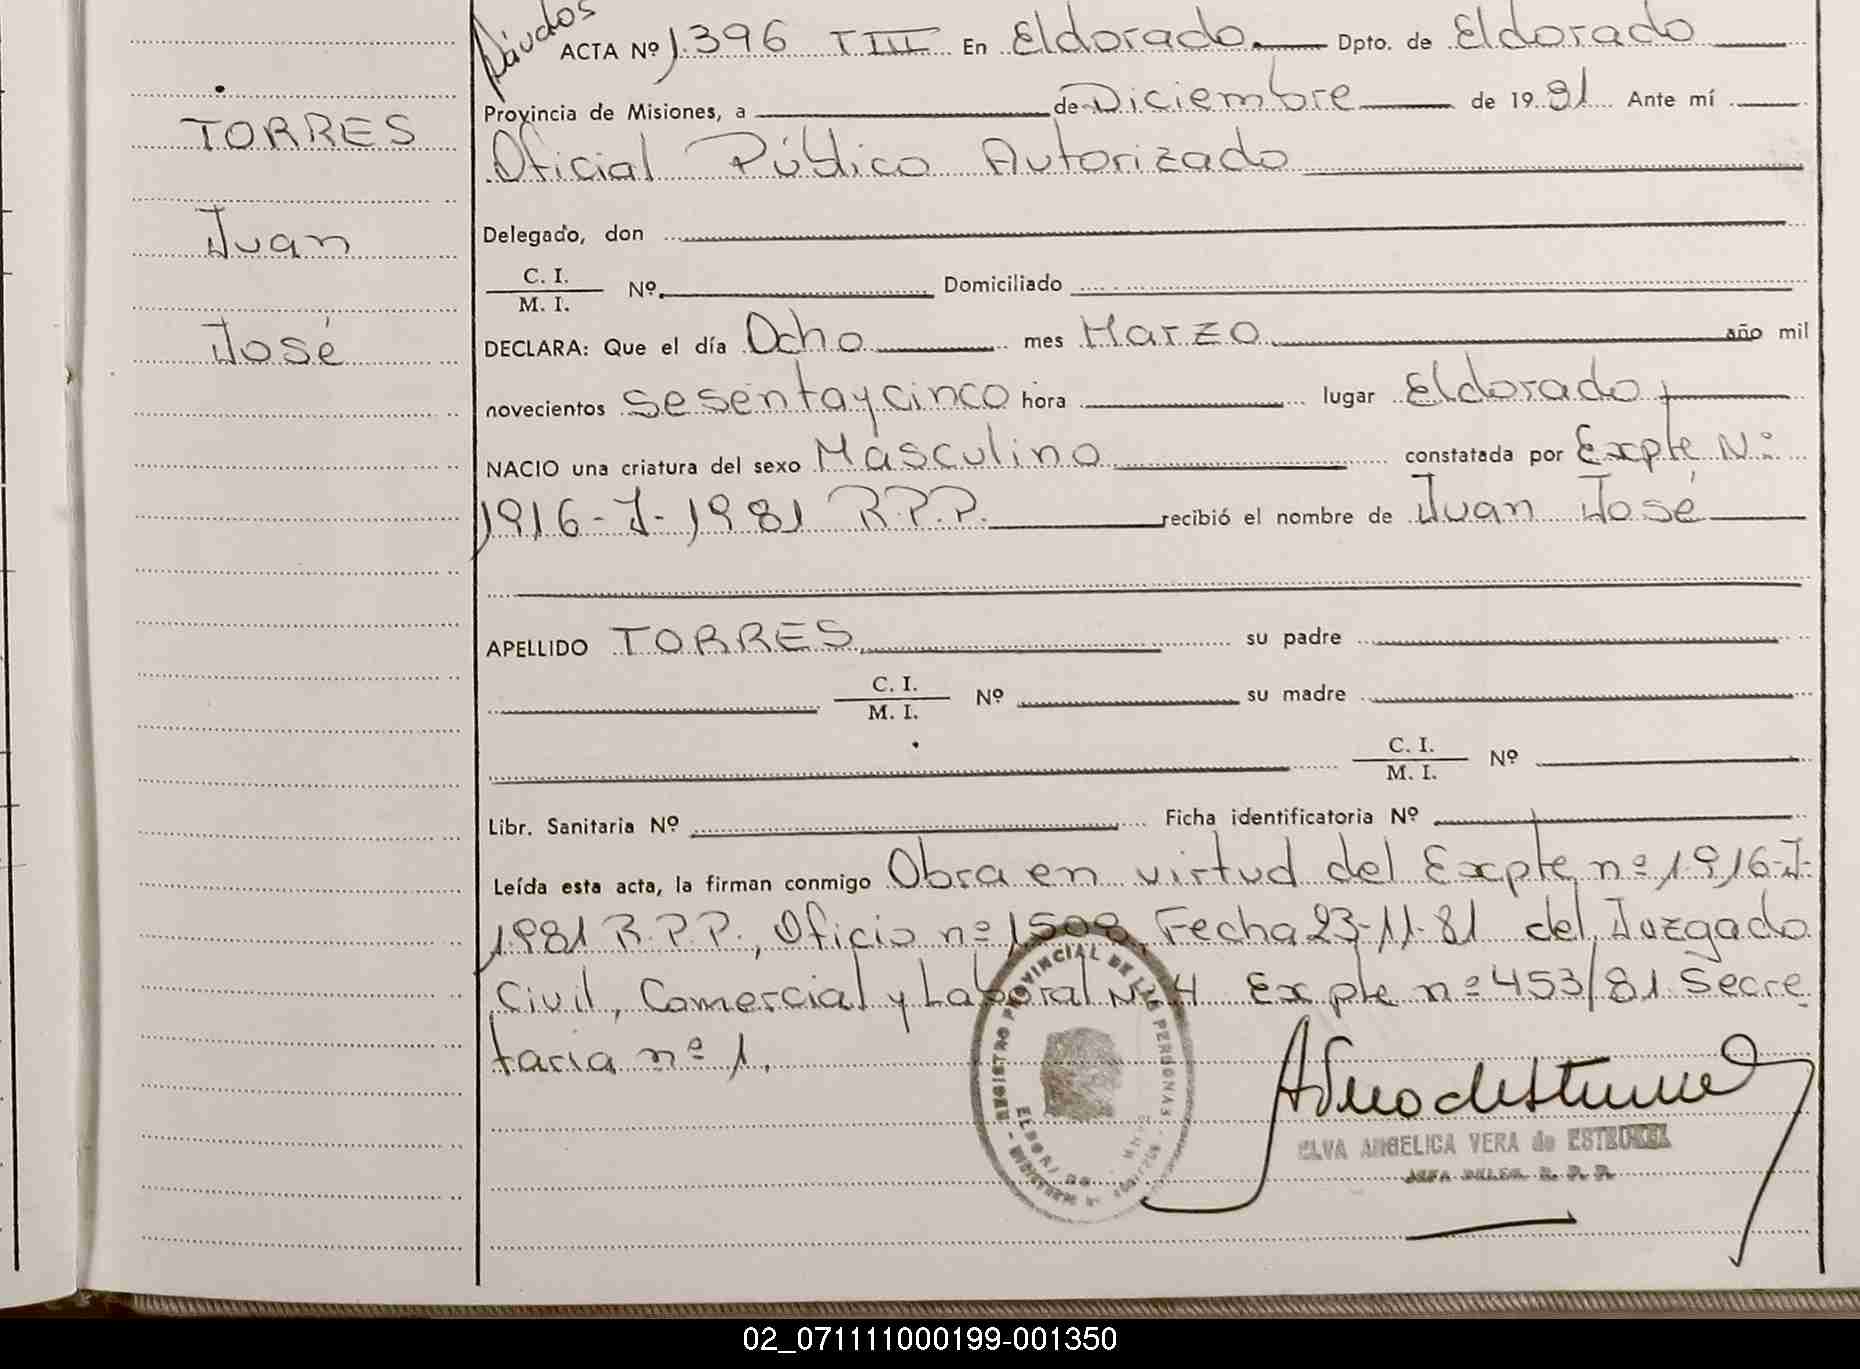 ACTA Nº 1.396 TIII En Eldorado. Dpto. de Eldorado
Provincia de Misiones, a de Diciembre de 19 81 Ante mí
TORRES
Oficial Público Autorizado
Delegado, don
Juan
C. I.
M. I. Nº Domiciliado
José
DECLARA: Que el día Ocho mes Marzo año mil
novecientos sesentaycinco hora lugar Eldorado
NACIO una criatura del sexo Masculino constatada por Expte Nº
1916-J-1981 R.P.P. recibió el nombre de Juan José
APELLIDO TORRES su padre
C. I.
M. I. Nº su madre
C. I.
M. I. Nº
Libr. Sanitaria Nº Ficha identificatoria Nº
Leída esta acta, la firman conmigo Obra en virtud del Expte nº 1.916-J-
1981 R.P.P., Oficio nº 1508, Fecha 23-11-81 del Juzgado
Civil, Comercial y Laboral Nº 4 Expte nº 453/81 Secre
taria nº 1.
REGISTRO PROVINCIAL DE LAS PERSONAS
ELDORADO
ELVA ANGELICA VERA de
02_071111000199-001350